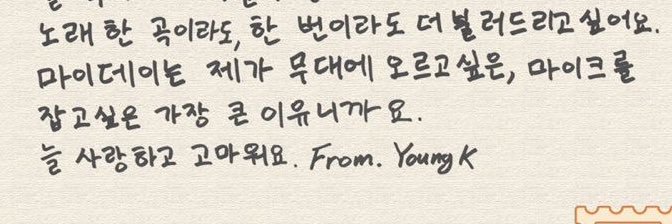 노래 한 곡이라도, 한 번이라도 더 불러드리고 싶어요.
마이데이는 제가 무대에 오르고싶은, 마이크를
잡고싶은 가장 큰 이유니까요.
늘 사랑하고 고마워요. From. Young K